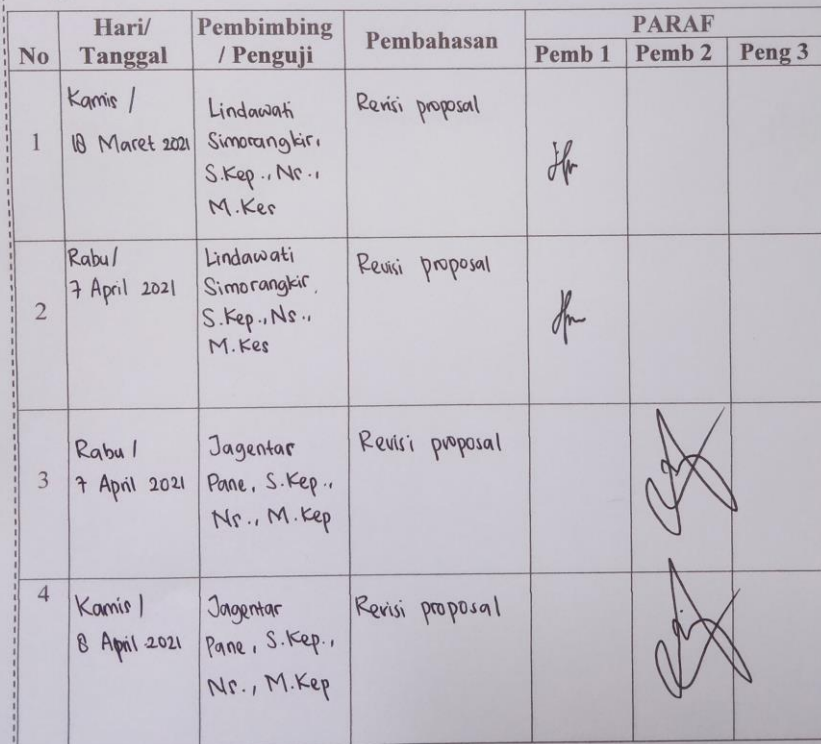 No Hari/ Tanggal Pembimbing / Penguji Pembahasan PARAF
Pemb 1 Pemb 2 Peng 3
1
Kamis /
18 Maret 2021
Lindawati
Simorangkir,
S.Kep., Ns.,
M.Kes
Revisi proposal
2
Rabu/
7 April 2021
Lindawati
Simorangkir,
S.Kep., Ns.,
M.Kes
Revisi proposal
3
Rabu/
7 April 2021
Jagentar
Pane, S.Kep.,
Ns., M.Kep
Revisi proposal
4
Kamis/
8 April 2021
Jagentar
Pane, S.Kep.,
Ns., M.Kep
Revisi proposal